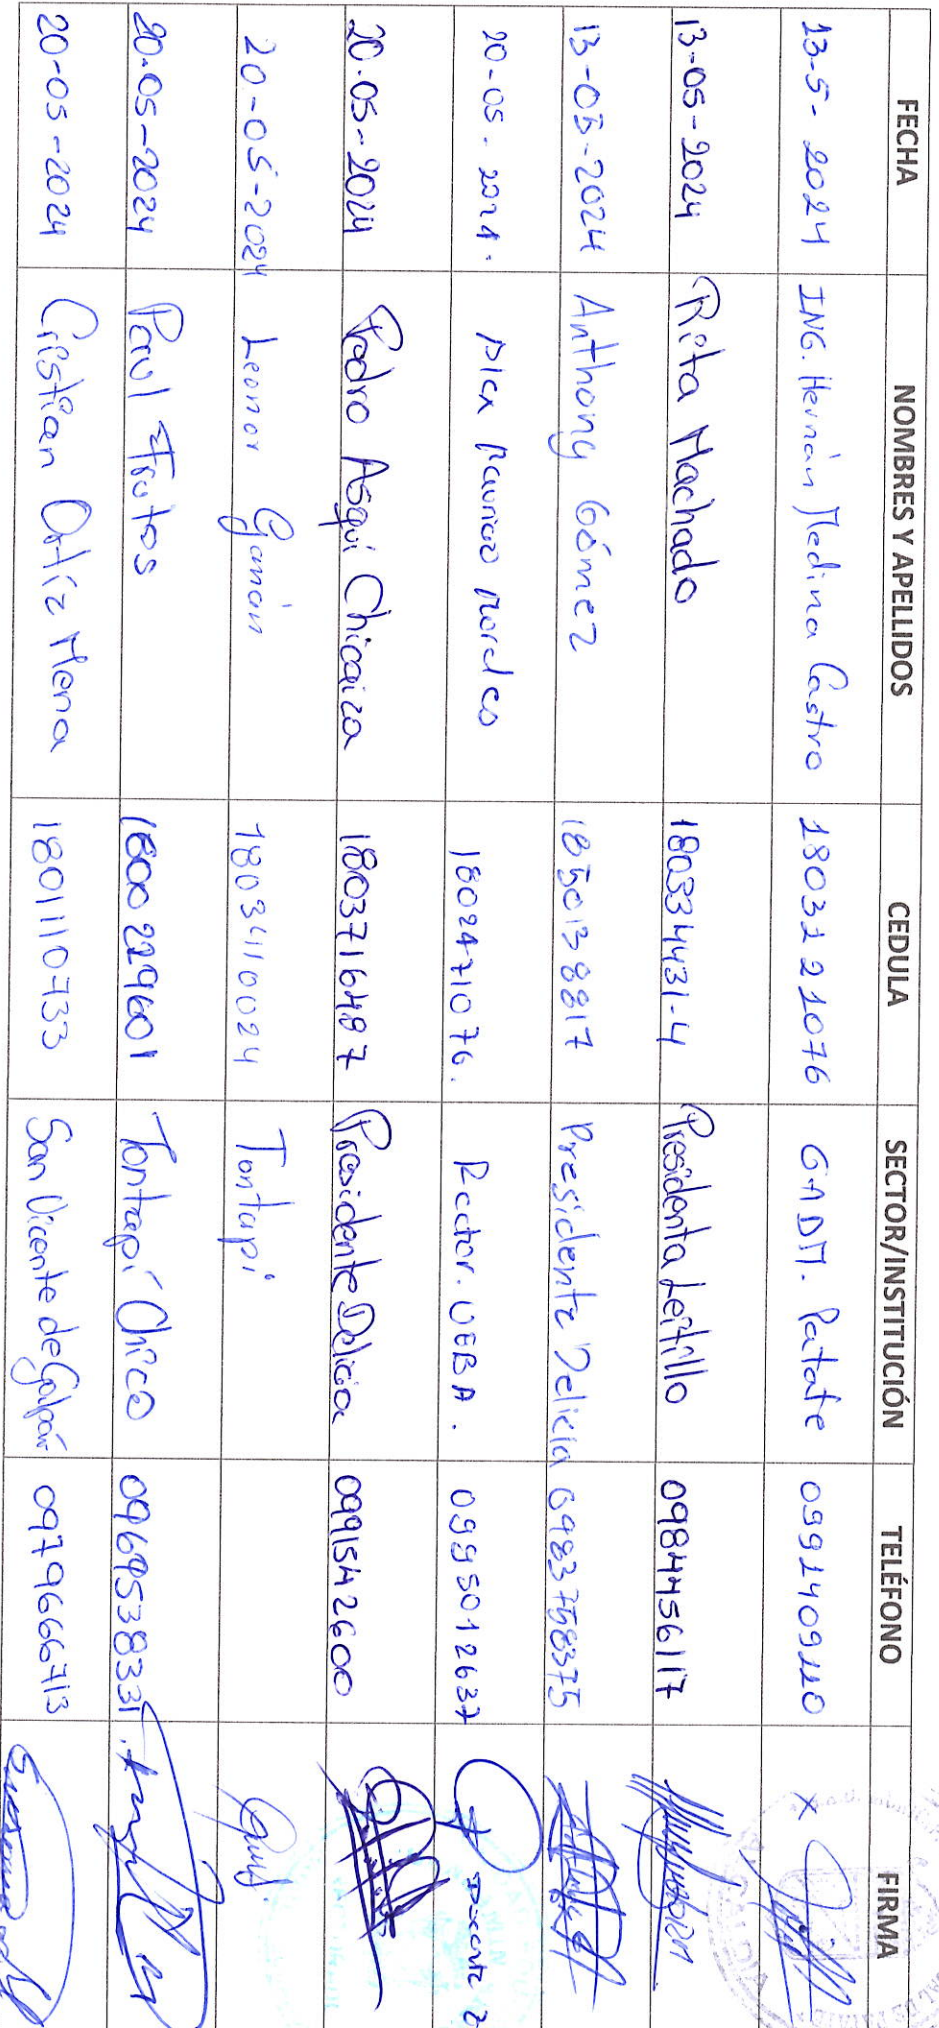 FECHA NOMBRES Y APELLIDOS CEDULA SECTOR/INSTITUCIÓN TELÉFONO FIRMA
13-5-2024 ING. Hernán Medina Castro 1803221076 GADM. Patate 0991409110 X
13-05-2024 Rita Machado 180334431-4 Presidenta Leitillo 0984456117
13-05-2024 Anthony Gómez 1850138817 Presidente Delicia 0983758375
20-05-2024. Morales 1802471076. Rector. UEBA. 0995012637
20-05-2024 Pedro Asqui Chicaiza 1803716487 Presidente Delicia 0991542600
20-05-2024 Leonor Gamán 1803410024 Tontapi
20-05-2024 Paul Frutos 1600229601 Tontapí Chico 0969538331
20-05-2024 Cristian Ortíz Mena 1801110733 San Vicente de Galpón 0979666713